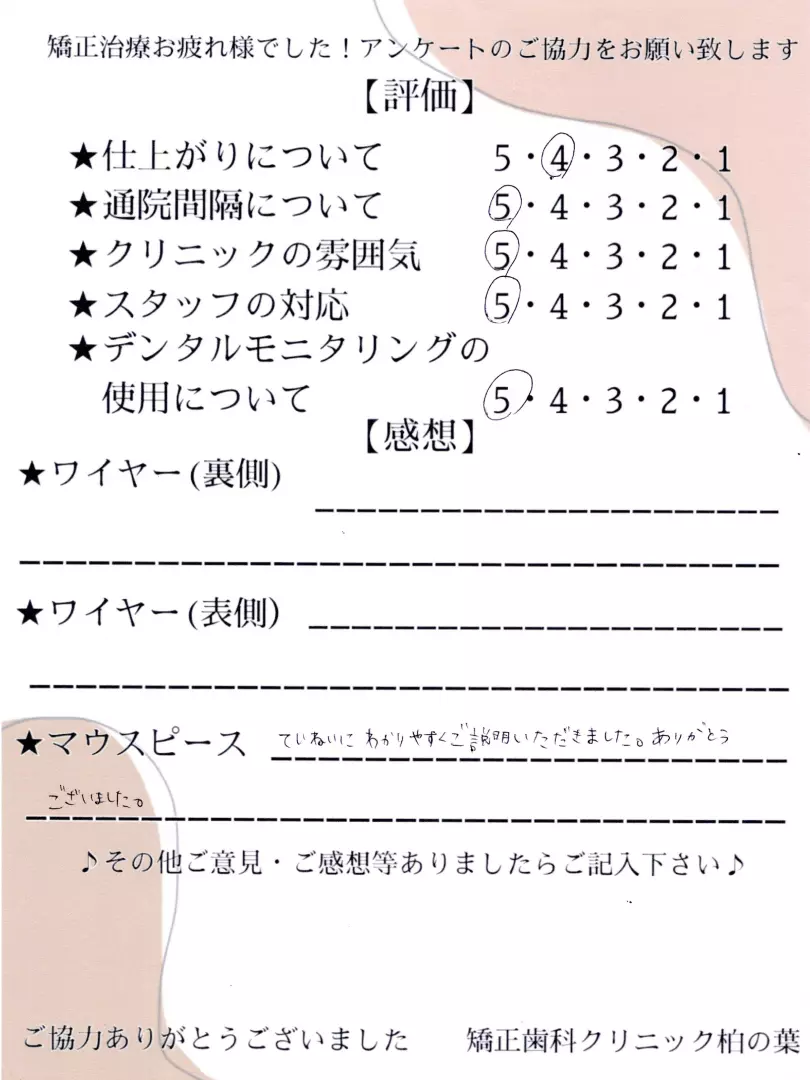 矯正治療お疲れ様でした！アンケートのご協力をお願い致します
【評価】
★仕上がりについて 5・4・3・2・1
★通院間隔について 5・4・3・2・1
★クリニックの雰囲気 5・4・3・2・1
★スタッフの対応 5・4・3・2・1
★デンタルモニタリングの
使用について 5・4・3・2・1
【感想】
★ワイヤー(裏側)
★ワイヤー(表側)
★マウスピース ていねいに わかりやすくご説明いただきました。ありがとう
ございました。
♪その他ご意見・ご感想等ありましたらご記入下さい♪
ご協力ありがとうございました 矯正歯科クリニック柏の葉